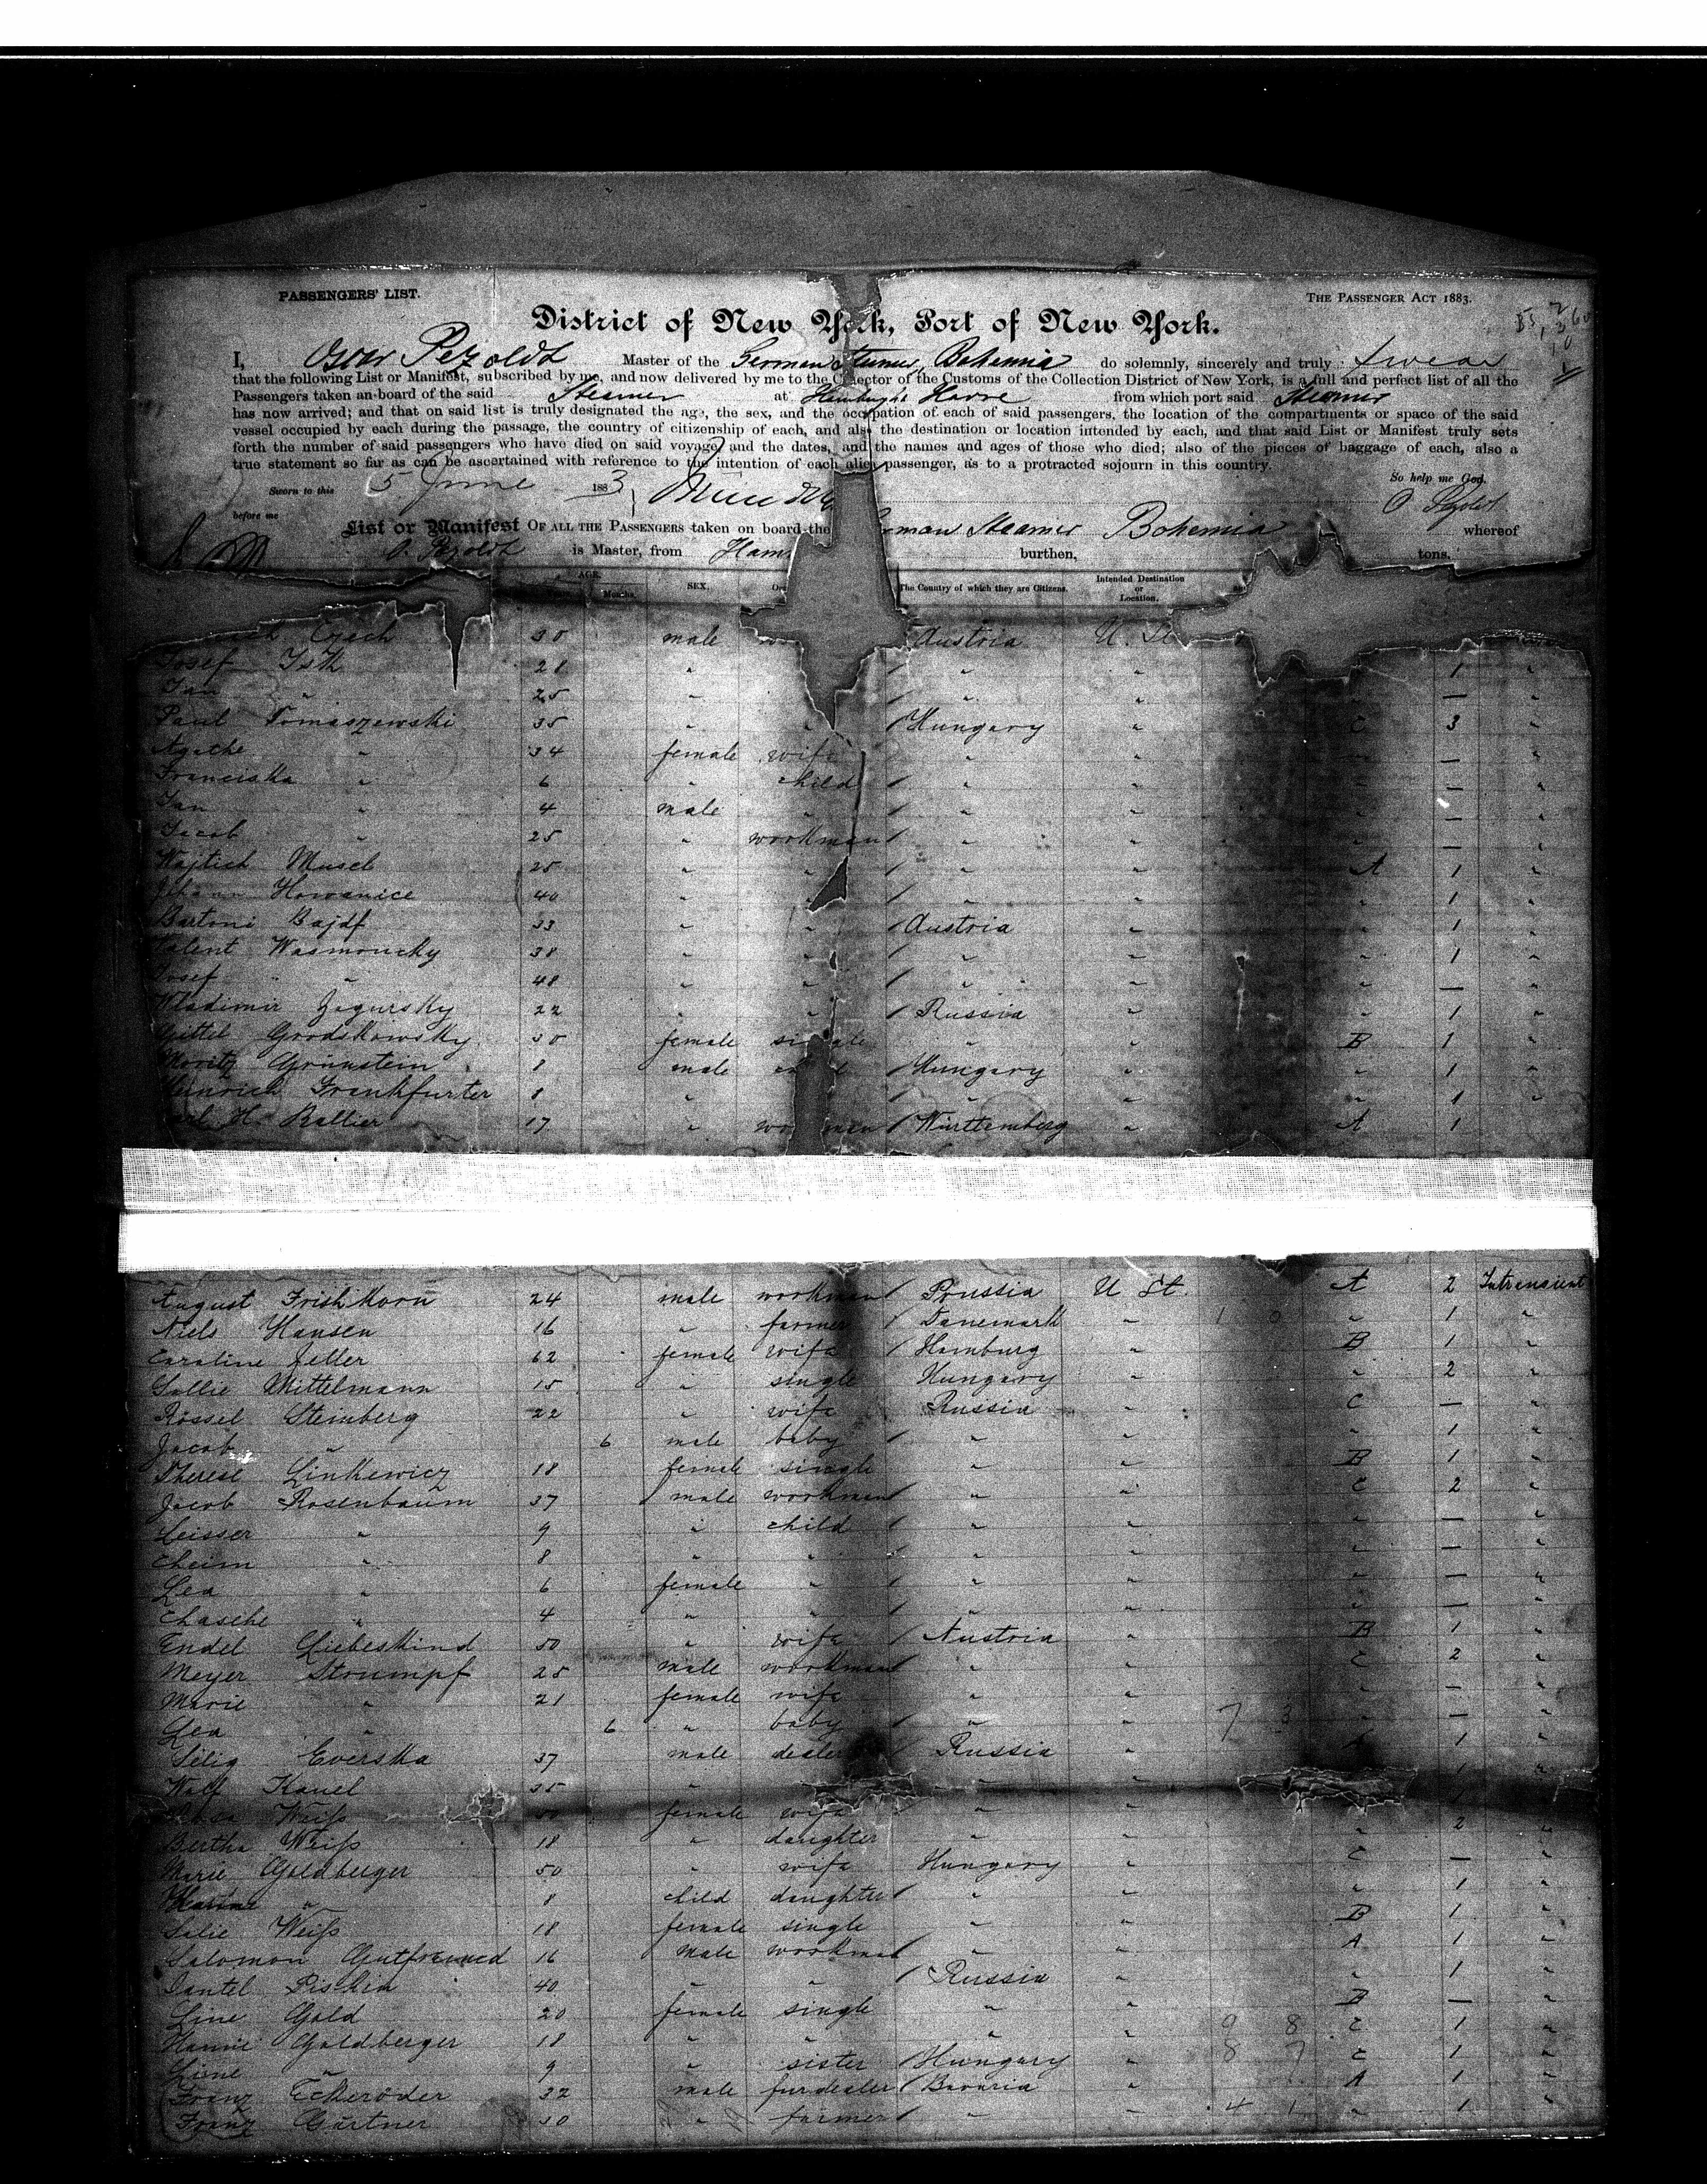 PASSENGERS' LIST.
THE PASSENGER ACT 1883.
District of New York, Port of New York.
I, Oscar Pezoldt Master of the German Steamer Bohemia do solemnly, sincerely and truly swear
that the following List or Manifest, subscribed by me, and now delivered by me to the Collector of the Customs of the Collection District of New York, is a full and perfect list of all the
Passengers taken on-board of the said Steamer at Hamburg & Havre from which port said Steamer
has now arrived; and that on said list is truly designated the age, the sex, and the occupation of each of said passengers, the location of the compartments or space of the said
vessel occupied by each during the passage, the country of citizenship of each, and also the destination or location intended by each, and that said List or Manifest truly sets
forth the number of said passengers who have died on said voyage, and the dates, and the names and ages of those who died; also of the pieces of baggage of each, also a
true statement so far as can be ascertained with reference to the intention of each alien passenger, as to a protracted sojourn in this country.
So help me God.
Sworn to this 5 June 1883
before me
List or Manifest OF ALL THE PASSENGERS taken on board the German Steamer Bohemia whereof
O. Pezoldt is Master, from Ham burthen, tons.
AGE. Months. SEX. The Country of which they are Citizens. Intended Destination or Location.
Czech 30 male Austria U. St
Josef 28 " " " 1 "
Jan " 25 " " " — "
Paul Tomaszewski 35 " " Hungary " C 3 "
Agathe " 34 female wife " " " — "
Franciska " 6 " child " " " — "
Jan " 4 male " " " " — "
Jacob " 25 " workman " " " — "
Wojtich Musch 25 " " " " A 1 "
Johann Howanice 40 " " " " " 1 "
Bartoni Bajdf 33 " " Austria " " 1 "
Valent Wasmoucky 38 " " " " " 1 "
Josef " 48 " " " " " — "
Wladimir Zagursky 22 " " Russia " " 1 "
Gittel Grodskowsky 30 female single " " B 1 "
Moritz Grünstein 8 male Hungary " " 1 "
Heinrich Frankfurter 8 " " " " 1 "
Carl H. Ballier 17 " workman Württemberg " A 1
August Frishkorn 24 male workman Prussia U St. A 2 Intransient
Niels Hansen 16 " farmer Danemark " 1 0 " 1 "
Caroline Zeller 62 female wife Hamburg " B 1 "
Sallie Mittelmann 15 " single Hungary " " 2 "
Rössel Steinberg 22 " wife Russia " C — "
Jacob " 6 male baby " " " 1 "
Therese Linkewicz 18 female single " " B 1 "
Jacob Rosenbaum 37 male workman " " C 2 "
Leisser " 9 " child " " " — "
Cheim " 8 " " " " " — "
Lea " 6 female " " " " — "
Chasche " 4 " " " " " — "
Endel Liebeskind 50 " wife Austria " B 1 "
Meyer Strumpf 25 male workman " " C 2 "
Marie " 21 female wife " " " — "
Lea " 6 " baby " " 7 3 " — "
Selig Everska 37 male dealer Russia " A 1 "
Wolf Kanel 35 " " " 1 "
Rosa Weiß 50 female wife " " 2
Bertha Weiß 18 " daughter " " " "
Marie Goldberger 50 " wife Hungary " C — "
" 8 child daughter " " " 1 "
Salie Weiß 18 female single " " B 1 "
Salomon Gutfreund 16 male workman " " A 1 "
Piskin 40 " " Russia " " 1 "
Line Gold 20 female single " " B — "
Hanni Goldberger 18 " " " " 9 8 C 1 "
Line " 9 " sister Hungary " 8 7 C 1 "
Franz Eckeröder 32 male furdealer Bavaria " A 1 "
Franz Gärtner 30 " farmer " " 4 1 " 1 "